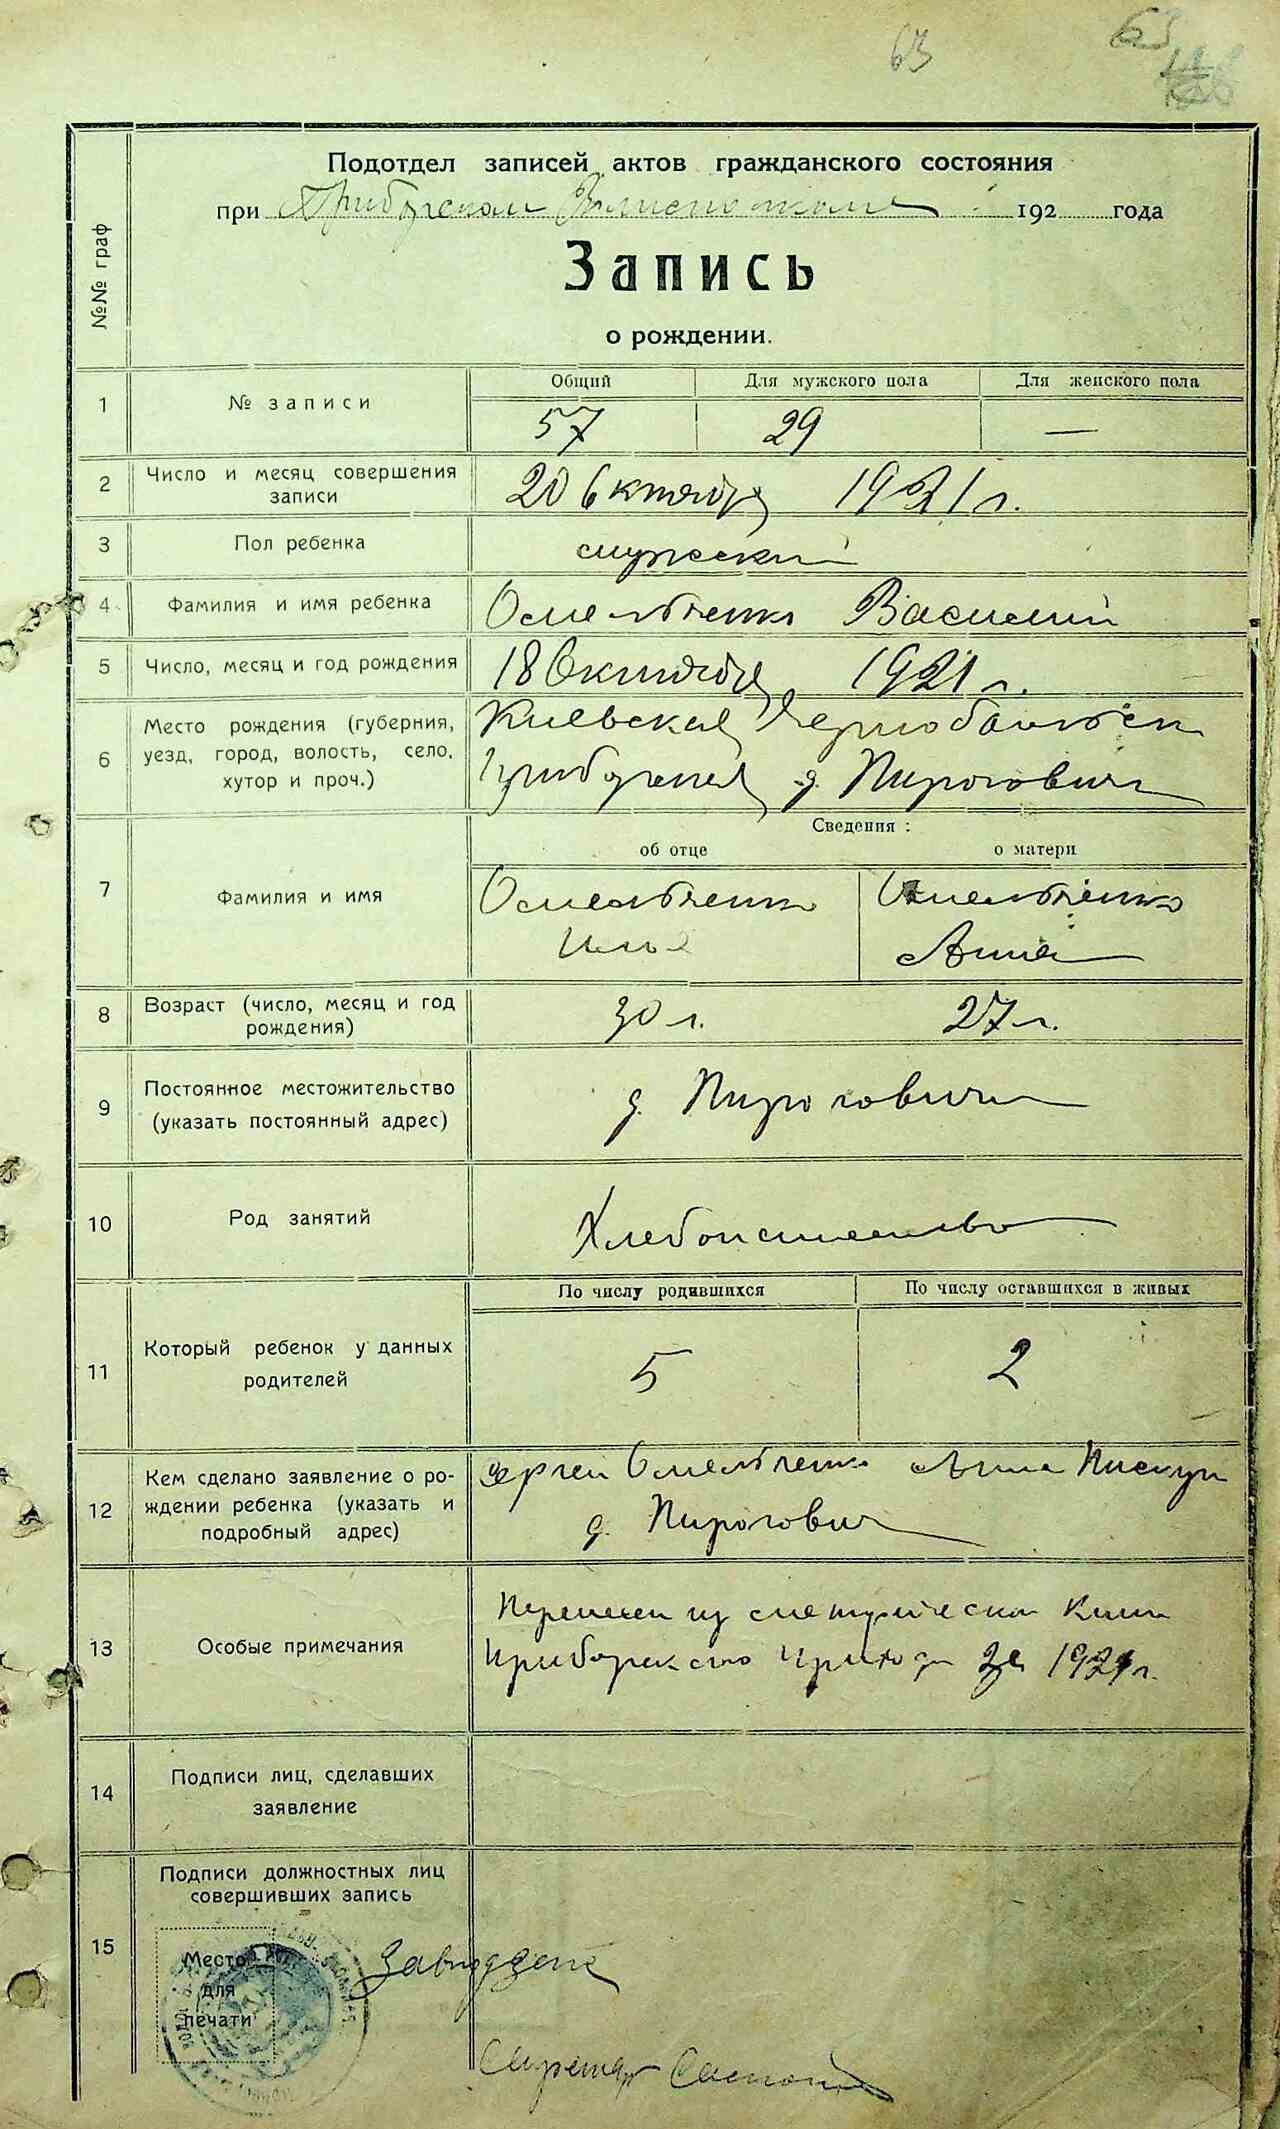 63
63
Подотдел записей актов гражданского состояния
при Приборском Волисполкоме 192 года
№№ граф
Запись
о рождении.
Общий Для мужского пола Для женского пола
1 № записи 57 29 —
2 Число и месяц совершения записи 20 Октября 1921 г.
3 Пол ребенка мужской
4 Фамилия и имя ребенка Омельченко Василий
5 Число, месяц и год рождения 18 Октября 1921 г.
6 Место рождения (губерния, Киевская Чернобыльск
уезд, город, волость, село, Приборская д. Пироговичи
хутор и проч.)
Сведения :
об отце о матери
7 Фамилия и имя Омельченко Омельченко
Илья Анна
8 Возраст (число, месяц и год рождения) 30 л. 27 л.
9 Постоянное местожительство д. Пироговичи
(указать постоянный адрес)
10 Род занятий Хлебопашество
По числу родившихся По числу оставшихся в живых
11 Который ребенок у данных родителей 5 2
12 Кем сделано заявление о ро- Сергей Омельченко Анна Пискун
ждении ребенка (указать и д. Пирогович
подробный адрес)
13 Особые примечания Перенесен из метрической Книги
Приборского прихода за 1921 г.
14 Подписи лиц, сделавших
заявление
Подписи должностных лиц
совершивших запись
15 Место для печати Завподдела
Секретарь